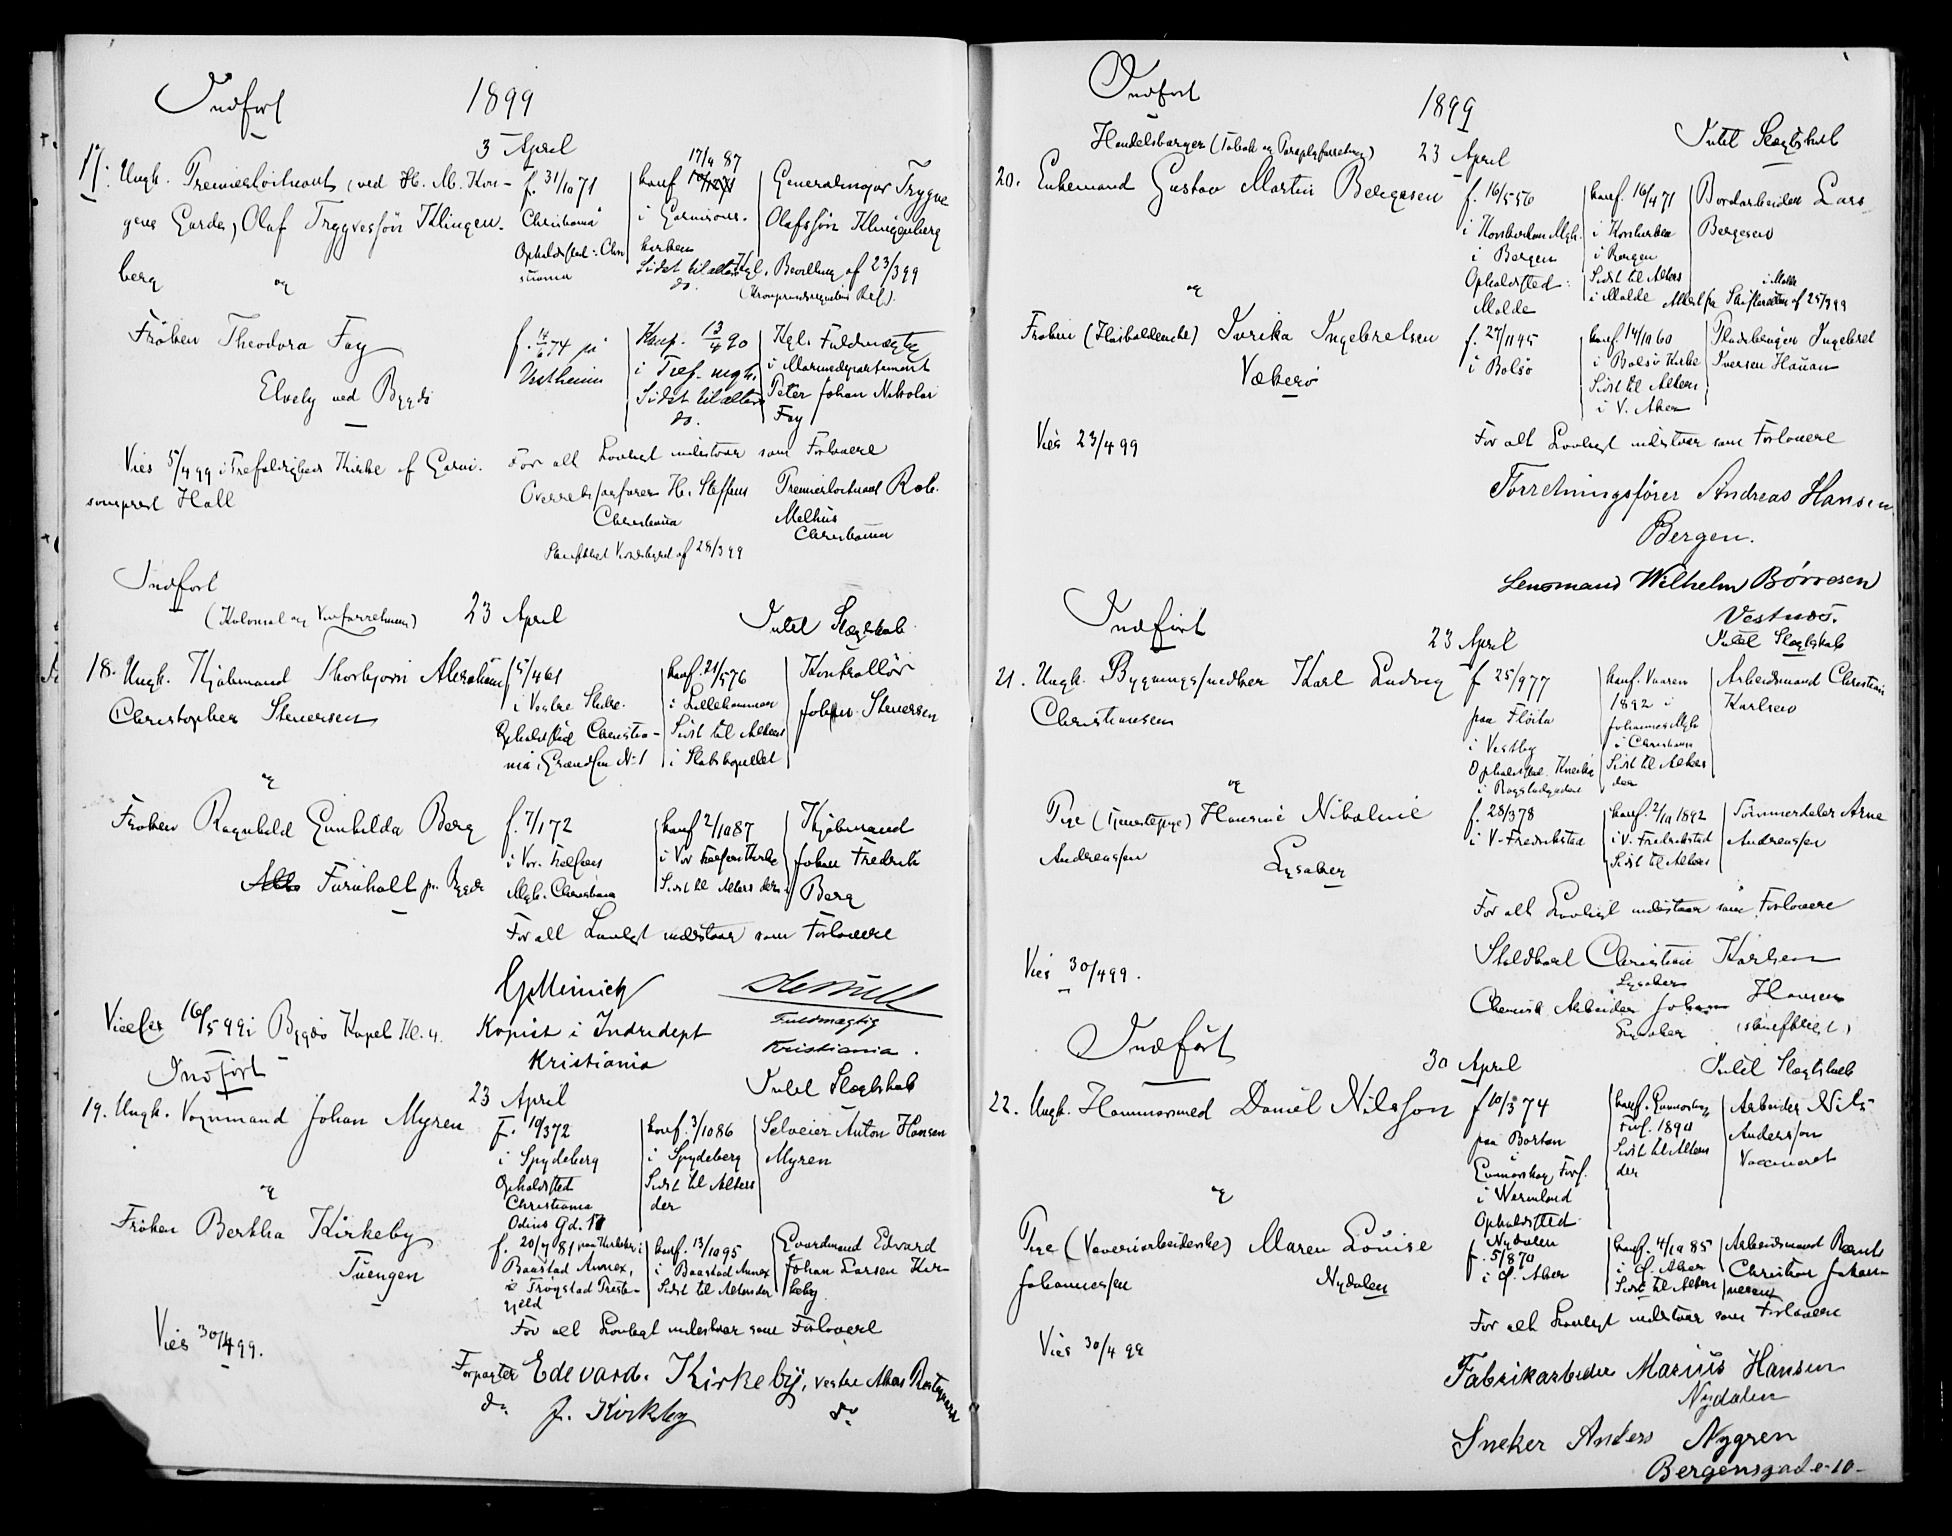 Indført
1899
3 April
17. Ungk. Premierløitnant (ved H. M. Kon-
gens Garde) Olaf Tryggvessøn Klingen-
berg
f. 31/10 71
Christiania
Opholdssted: Chri
stiania
17/4 87
konf
i Garnisons-
kirken
Sidst til alters
do.
Generalmajor Trygve
Olafssøn Klingenberg
Kgl. Bevilling af 23/3 99
og
Frøken Theodora Fay
Elvely ved Bygdø
f. 74 på
Vestheim
Konf. 13/4 90
i Tref. mgh.
Sidst til alters
do.
Kgl. Fuldmægtig
i Marinedepartementet
Peter Johan Nikolai
Fay
Vies 5/4 99 i Trefoldigheds Kirke af Garni-
sonsprest Hall
For alt Lovligt indestaar som Forlovere
Overretssagfører H. Steffens
Christiania
Premierløitnant Rob.
Melhus
Christiania
Skriftligt Vidnesbyrd af 28/3 99
Indført
(Kolonial og Vinforretning)
23 April
Intet Slægtskab
18. Ungk. Kjøbmand Thorbjørn Abraham
Christopher Stenersen
f 5/4 61
i Vestre Slidre.
Opholdssted Christia-
nia, Grændsen No 1
konf. 21/5 76
i Lillehammer
Sidst til Alters
i Slotskapellet
Kontrollør
Johan Stenersen
og
Frøken Ragnhild Gunhilda Berg
Furuholt pr. Bygdø
f. 7/1 72
i Vor Frelsers
Mgh. Christiania
konf 2/10 87
i Vor Frelsers Kirke
Sidst til Alters der
Kjøbmand
Johan Fredrik
Berg
For alt Lovligt indestaar som Forlovere
G Meinich
Kopist i Indredept
Kristiania
Fuldmægtig
Kristiania.
Viedes 16/5 99 i Bygdø Kapel Kl. 4
Indført
23 April
Intet Slægtskab
19. Ungk. Vognmand Johan Myren
f. 19/3 72
i Spydeberg
Opholdssted
Christiania
Odins Gd. 17
konf. 3/10 86
i Spydeberg
Sidst til Alters
der
Selveier Anton Hansen
Myren
og
Frøken Bertha Kirkeby
Tuengen
f. 20/7 81 paa Kirkeby i
Baastad Annex,
Trøgstad Præste-
gjeld
konf. 13/10 95
i Baastad Annex
Sidst til Alters der
Gaardmand Edvard
Johan Larsen Kir-
keby
For alt Lovligt indestaar som Forlovere
Vies 30/4 99.
Forpagter Edevard. Kirkeby, vestre Akers Prestegaard
do J. Kirkeby do
Indført
1899
Handelsborger (Tobak og Paraplyforretning)
23 April
Intet Slægtskab
20. Enkemand Gustav Martin Bergesen
f. 16/5 56
i Korskirkens Mgh.
i Bergen
Opholdssted:
Molde
konf. 16/4 71
i Korskirken
i Bergen
Sidst til Alters
i Molde
Bordarbeider Lars
Bergesen
i Molde
Attest fra Skifteretten af 25/3 99
og
Frøken (Husholderske) Iverika Ingebretsen
Vækerø
f. 27/11 45
i Bolsø
konf. 14/10 60
i Bolsø Kirke
Sidst til Alters
i V. Aker
Pladsbruger Ingebret
Iversen Hauan
Vies 23/4 99
For alt Lovligt indestaar som Forlovere
Forretningsfører Andreas Hansen
Bergen.
Lensmand Wilhelm Børresen
Vestnæs.
Indført
23 April
Intet Slægtskab
21. Ungk. Bygningssnedker Karl Ludvig
Christiansen
f 25/9 77
paa Fløita
i Vestby
konf. Vaaren
1892 i
Johannes Mgh
i Christiania
Sidst til Alters
der
Arbeidsmand Christian
Karlsen
og
Pige (Tjenestepige) Hansine Nikoline
Andreassen
Lysaker
f. 28/3 78
i V. Fredrikstad
konf. 2/10 1892
i V. Fredrikstad
Sidst til Alters
Tømmerdeler Arne
Andreassen
For alt Lovligt indestaar som Forlovere
Vies 30/4 99.
Staldkarl Christian Karlsen
Lysaker
Chemisk Arbeider Johan Hansen
Lysaker (skriftligt)
Indført
30 April
Intet Slægtskab
22. Ungk. Hammersmed Daniel Nilsson
f 10/3 74
paa Borton
Gunnarskog Fors.
i Wermland
Opholdssted
Nydalen
konf. Gunnarskog
Fors. 1890
Sidst til Alters
der
Arbeider Nils
Andersson
Vaccineret
og
Pige (Væveriarbeiderske) Maren Louise
Johannessen
Nydalen
f. 5/8 70
i Ø. Aker
konf. 4/10 85
i Ø. Aker
Sidst til Alters
Arbeidsmand Bernt
Christian Johan-
nessen
For alt Lovligt indestaar som Forlovere
Vies 30/4 99
Fabrikarbeider Marius Hansen
Nydalen
Sneker Anders Nygren
Bergensgade 10